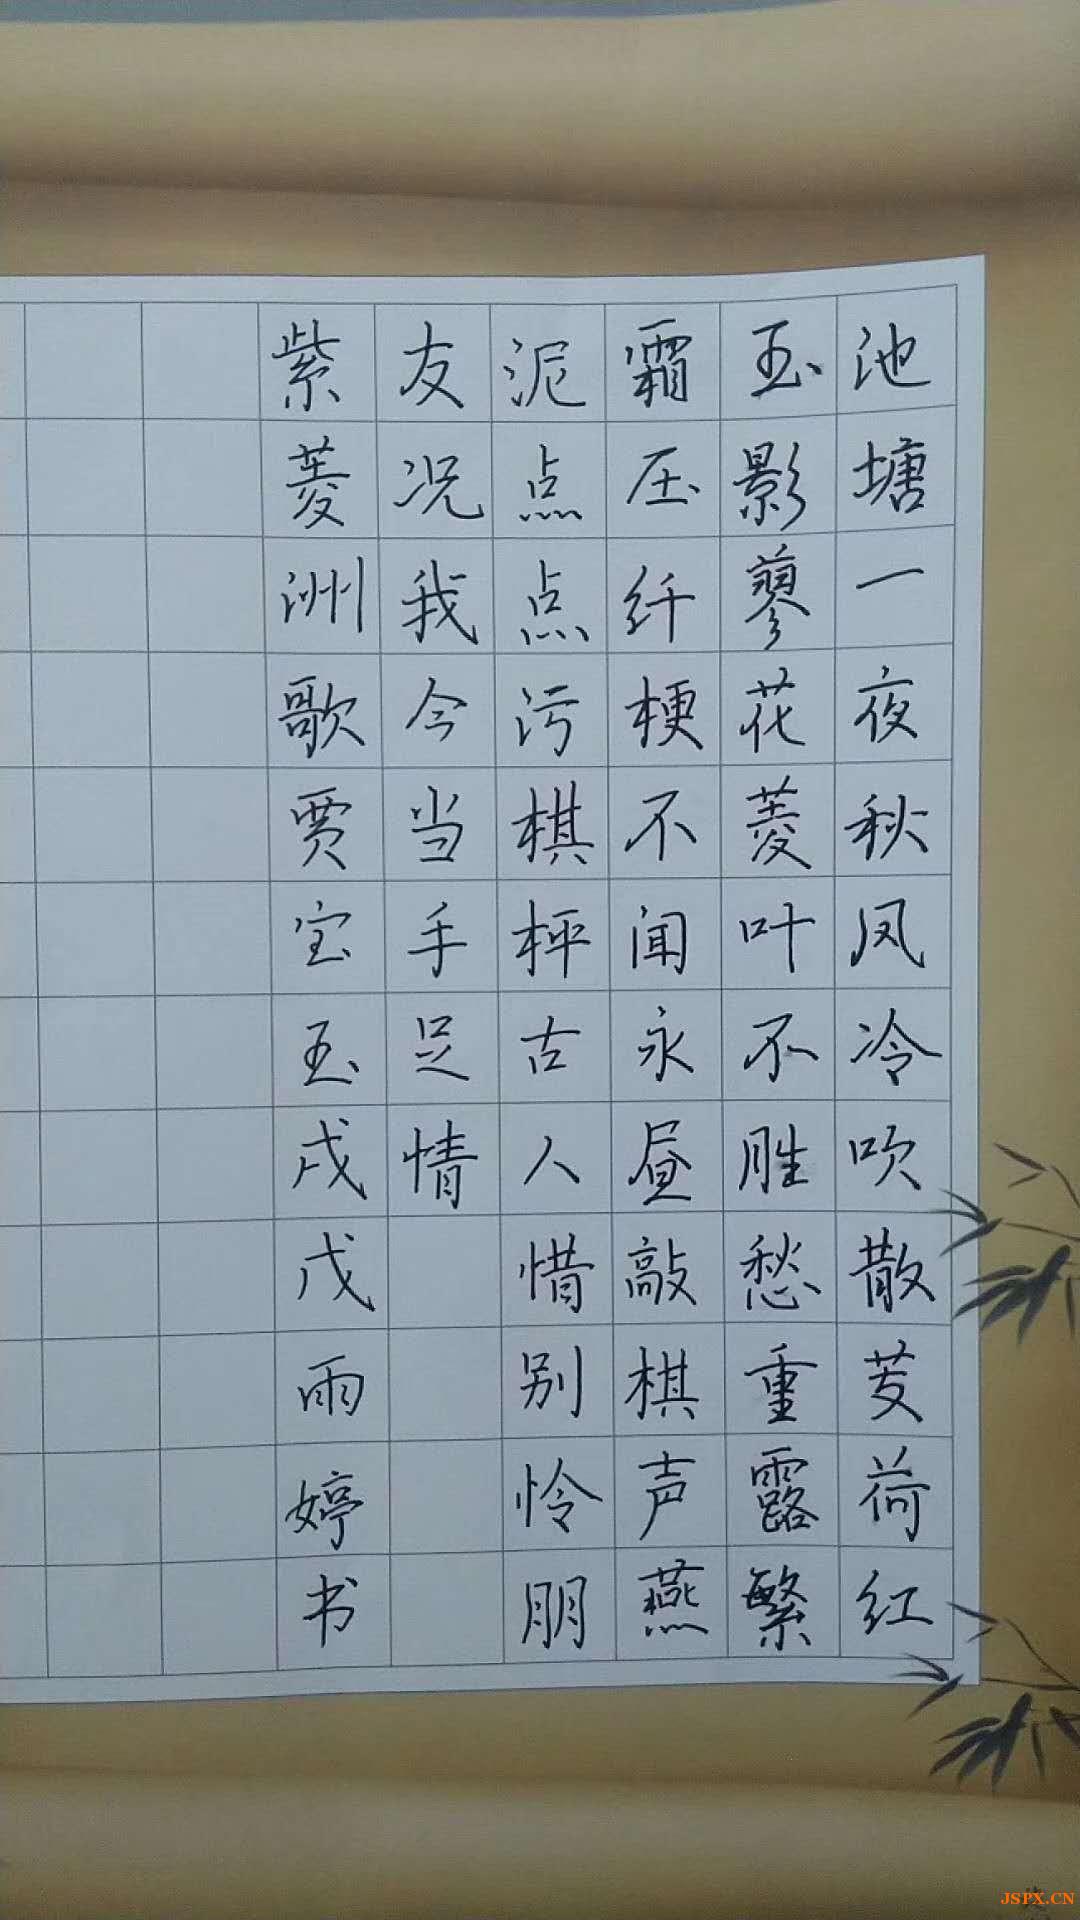 池塘一夜秋风冷吹散芰荷红
玉影蓼花菱叶不胜愁重露繁
霜压纤梗不闻永昼敲棋声燕
泥点点污棋枰古人惜别怜朋
友况我今当手足情
紫菱洲歌贾宝玉戌戊雨婷书
JSPX.CN